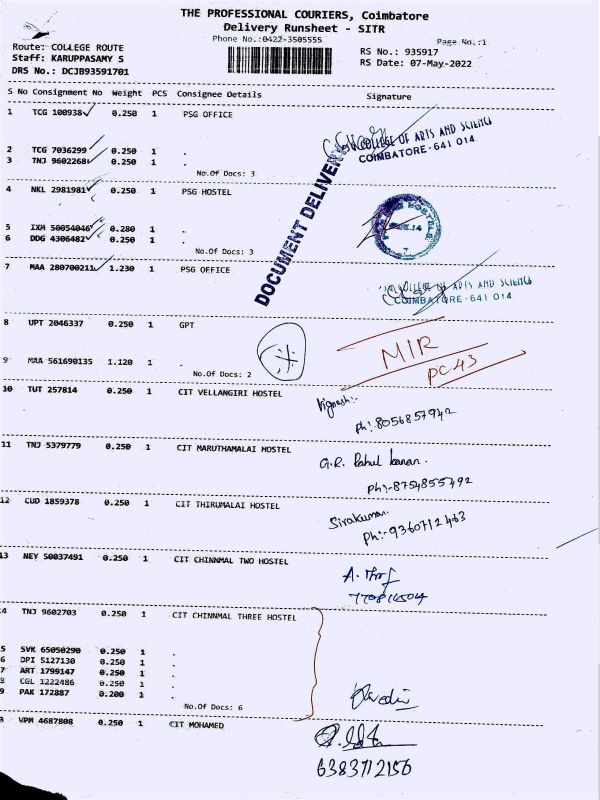 THE PROFESSIONAL COURIERS, Coimbatore
Delivery Runsheet - SITR
Phone No.:0422-3505555
Page No.:1
Route: COLLEGE ROUTE
Staff: KARUPPASAMY S
DRS No.: DCJB93591701
RS No.: 935917
RS Date: 07-May-2022
S No Consignment No Weight PCS Consignee Details Signature
1 TCG 100938 0.250 1 PSG OFFICE
2 TCG 7036299 0.250 1 .
3 TNJ 9602268 0.250 1 .
No.Of Docs: 3
COLLEGE OF ARTS AND SCIENCE
COIMBATORE - 641 014
DOCUMENT DELIVERY
4 NKL 2981981 0.250 1 PSG HOSTEL
5 IXM 50054046 0.280 1 .
6 DDG 4306482 0.250 1 .
No.Of Docs: 3
7 MAA 280700211 1.230 1 PSG OFFICE
COLLEGE OF ARTS AND SCIENCE
COIMBATORE - 641 014
8 UPT 2046337 0.250 1 GPT
MIR
PC 43
9 MAA 561690135 1.120 1 .
No.Of Docs: 2
10 TUT 257814 0.250 1 CIT VELLANGIRI HOSTEL
Vignesh:-
Ph:-8056857942
11 TNJ 5379779 0.250 1 CIT MARUTHAMALAI HOSTEL
G.R. Rahul kanan.
Ph:-8754855492
12 CUD 1859378 0.250 1 CIT THIRUMALAI HOSTEL
Sivakumar.
Ph:-9360712463
13 NEY 50037491 0.250 1 CIT CHINNMAL TWO HOSTEL
4 TNJ 9602703 0.250 1 CIT CHINNMAL THREE HOSTEL
5 SVK 65050290 0.250 1 .
6 DPI 5127130 0.250 1 .
7 ART 1799147 0.250 1 .
8 CGL 1222486 0.250 1 .
9 PAK 172887 0.200 1 .
No.Of Docs: 6
0 VPM 4687808 0.250 1 CIT MOHAMED
6383712156